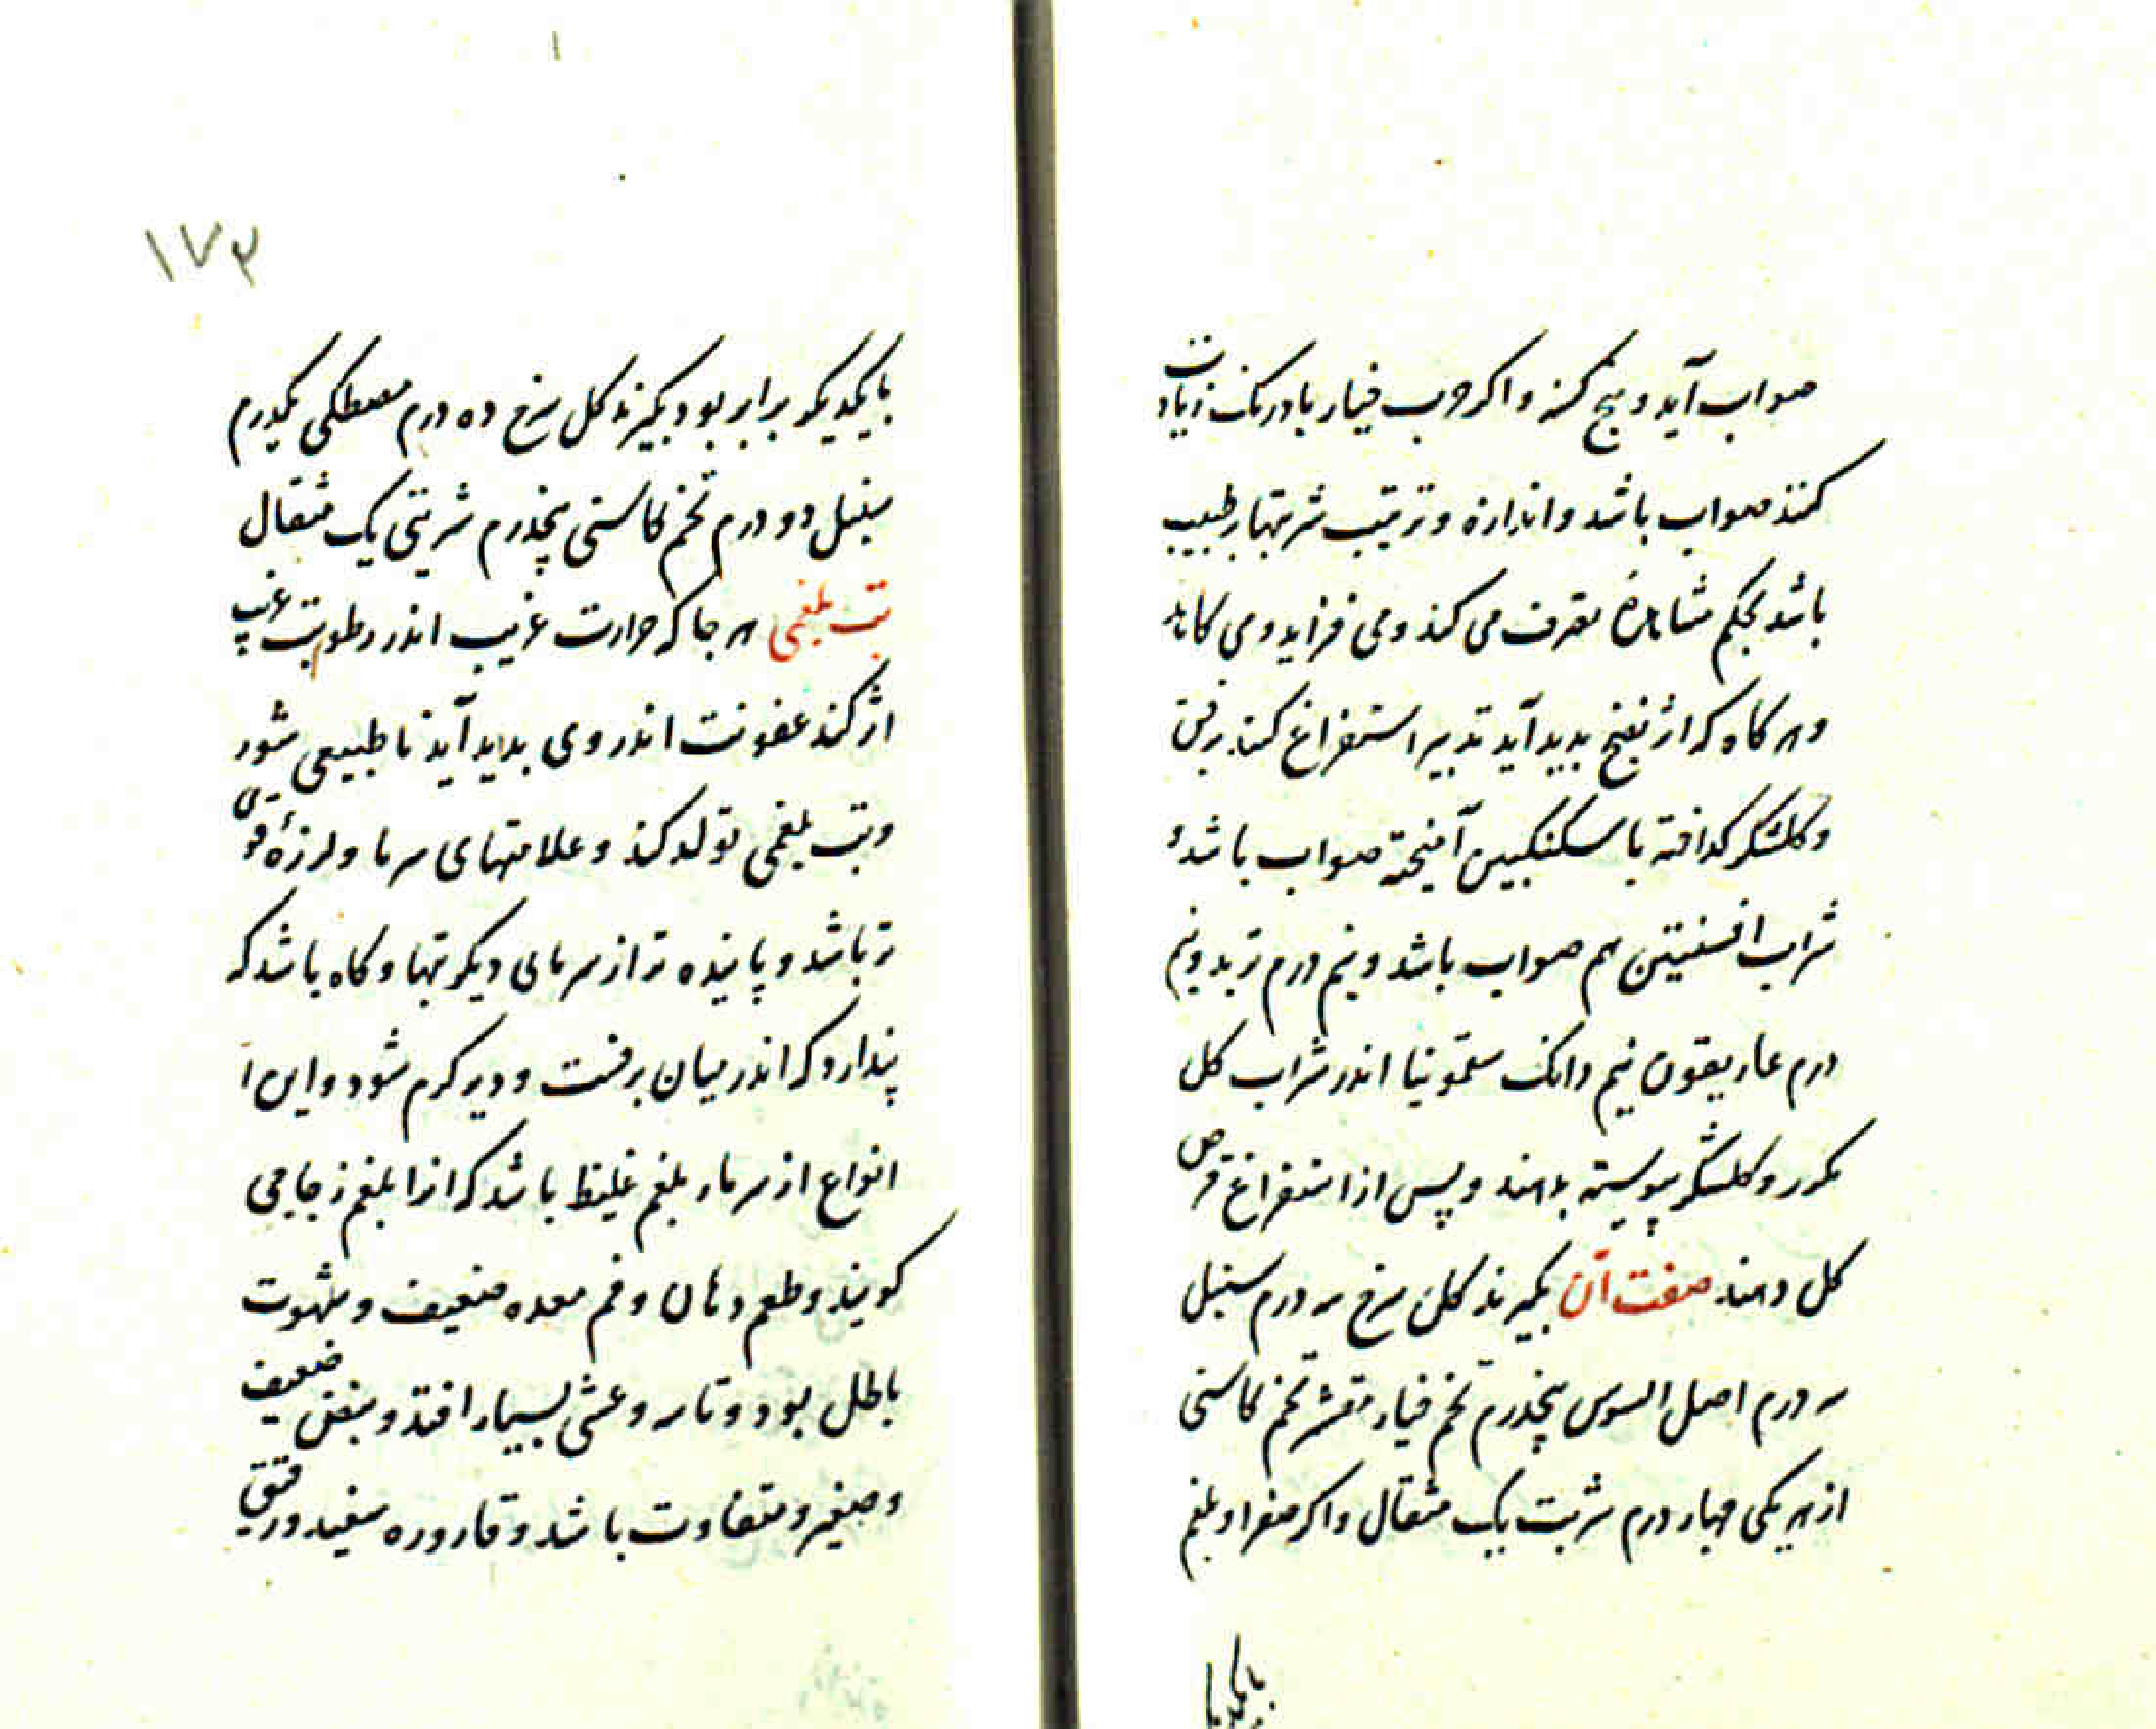 صواب آید و هیچ کسنه و اکر حرب خیار بادرنک زیادت
کنند صواب باشد و اندازه و ترتیب شربتها بر طبیب
باشد بحکم مشاهدهٔ تصرف می کند و می فزاید و می کاهد
و هر کاه که اثر نضج بدید آید تدبیر استفراغ کنند برفق
و کلشکر کداخته با سکنکبین آمیخته صواب باشد و
شراب افسنتین هم صواب باشد و نیم درم تربد و نیم
درم غاریقون نیم دانک سقمونیا اندر شراب کل
مکرر و کلشکر پیوسته بدهند و پس از استفراغ قرص
کل دهند صفت آن بکیرند کل سرخ سه درم سنبل
سه درم اصل السوس پنجدرم تخم خیار مقشر تخم کاسنی
از هر یکی چهار درم شربت یک مثقال و اکر صفرا و بلغم
بایکدیکر
۱۷۳
بایکدیکر برابر بود بکیرند کل سرخ ده درم مصطکی یکدرم
سنبل دو درم تخم کاسنی پنجدرم شربتی یک مثقال
تب بلغمی هر جا که حرارت غریب اندر رطوبت غریب
اثر کند عفونت اندر وی بدید آید ناطبیعی شود
و تب بلغمی تولد کند و علامتهای سرما و لرزهٔ قوی
تر باشد و پاینده تر از سرمای دیکر تبها و کاه باشد که
پندارد که اندر میان برفست و دیر کرم شود و این
انواع از سرما ر بلغم غلیظ باشد که انرا بلغم زجاجی
کویند و طعم دهان و فم معده ضعیف و شهوت
باطل بود و تاسه و غشی بسیار افتد و نبض ضعیف
و صغیر و متفاوت باشد و قاروره سفید و رقیق